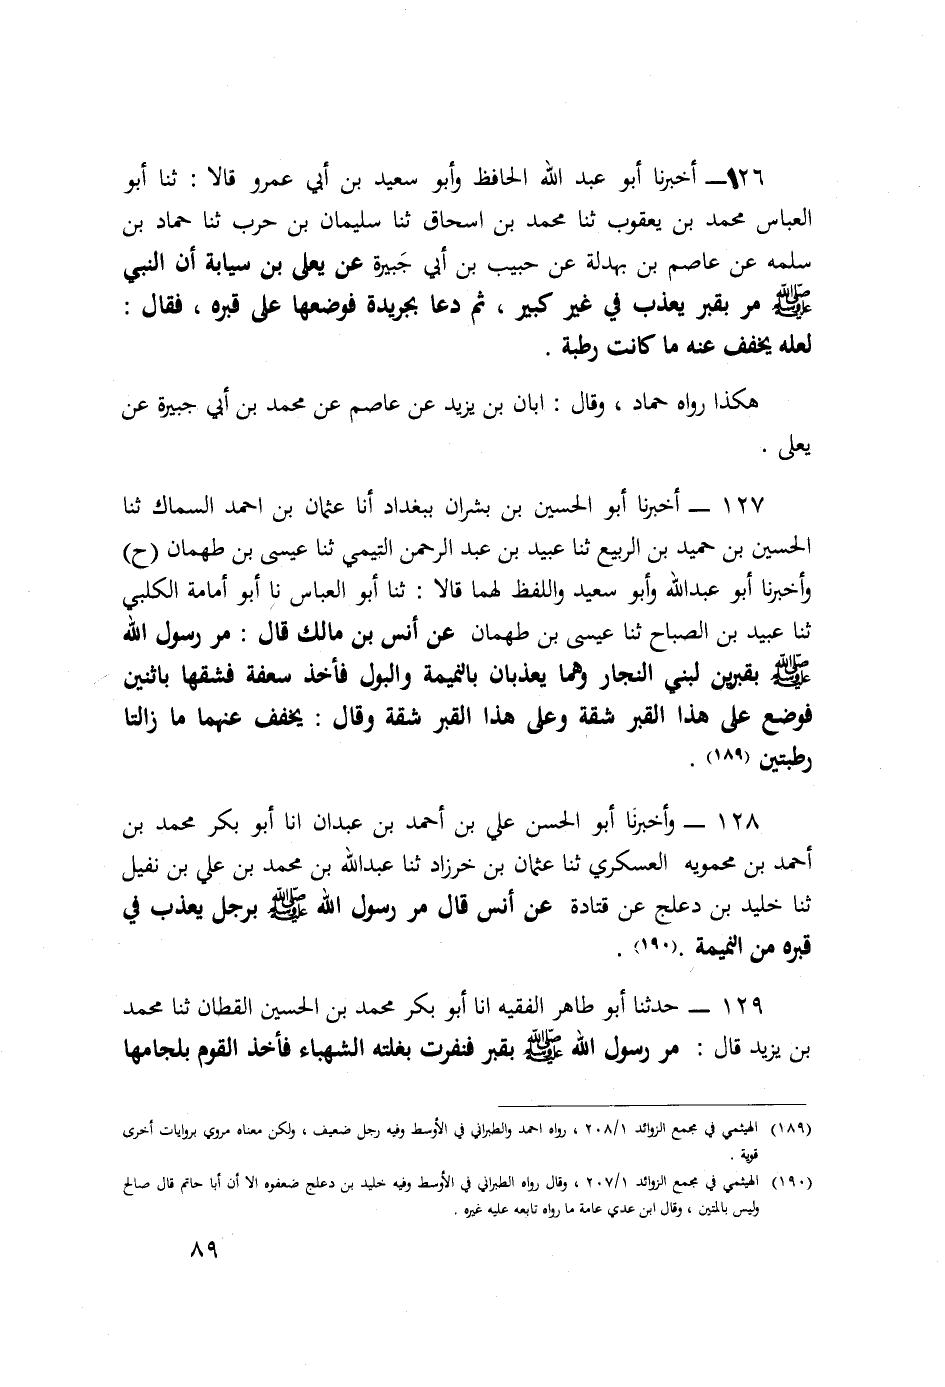 ١٢٦ــ أخبرنا أبو عبد الله الحافظ وأبو سعيد بن أبي عمرو قالا : ثنا أبو
العباس محمد بن يعقوب ثنا محمد بن اسحاق ثنا سليمان بن حرب ثنا حماد بن
سلمه عن عاصم بن بهدلة عن حبيب بن أبي جَبيرة عن يعلى بن سيابة أن النبي
ﷺ مر بقبر يعذب في غير كبير ، ثم دعا بجريدة فوضعها على قبره ، فقال :
لعله يخفف عنه ما كانت رطبة .
هكذا رواه حماد ، وقال : ابان بن يزيد عن عاصم عن محمد بن أبي جبيرة عن
يعلى .
١٢٧ ــ أخبرنا أبو الحسين بن بشران ببغداد أنا عثمان بن احمد السماك ثنا
الحسين بن حميد بن الربيع ثنا عبيد بن عبد الرحمن التيمي ثنا عيسى بن طهمان (ح)
وأخبرنا أبو عبدالله وأبو سعيد واللفظ لهما قالا : ثنا أبو العباس نا أبو أمامة الكلبي
ثنا عبيد بن الصباح ثنا عيسى بن طهمان عن أنس بن مالك قال : مر رسول الله
ﷺ بقبرين لبني النجار وهما يعذبان بالنميمة والبول فأخذ سعفة فشقها باثنين
فوضع على هذا القبر شقة وعلى هذا القبر شقة وقال : يخفف عنهما ما زالتا
رطبتين (١٨٩) .
١٢٨ ــ وأخبرنَا أبو الحسن علي بن أحمد بن عبدان انا أبو بكر محمد بن
أحمد بن محمويه العسكري ثنا عثمان بن خرزاد ثنا عبدالله بن محمد بن علي بن نفيل
ثنا خليد بن دعلج عن قتادة عن أنس قال مر رسول الله ﷺ برجل يعذب في
قبره من النميمة .(١٩٠) .
١٢٩ ــ حدثنا أبو طاهر الفقيه انا أبو بكر محمد بن الحسين القطان ثنا محمد
بن يزيد قال : مر رسول الله ﷺ بقبر فنفرت بغلته الشهباء فأخذ القوم بلجامها
(١٨٩) الهيثمي في مجمع الزوائد ٢٠٨/١ ، رواه احمد والطبراني في الأوسط وفيه رجل ضعيف ، ولكن معناه مروي بروايات أخرى
قوية .
(١٩٠) الهيثمي في مجمع الزوائد ٢٠٧/١ ، وقال رواه الطبراني في الأوسط وفيه خليد بن دعلج ضعفوه الا أن أبا حاتم قال صالح
وليس بالمتين ، وقال ابن عدي عامة ما رواه تابعه عليه غيره .
٨٩